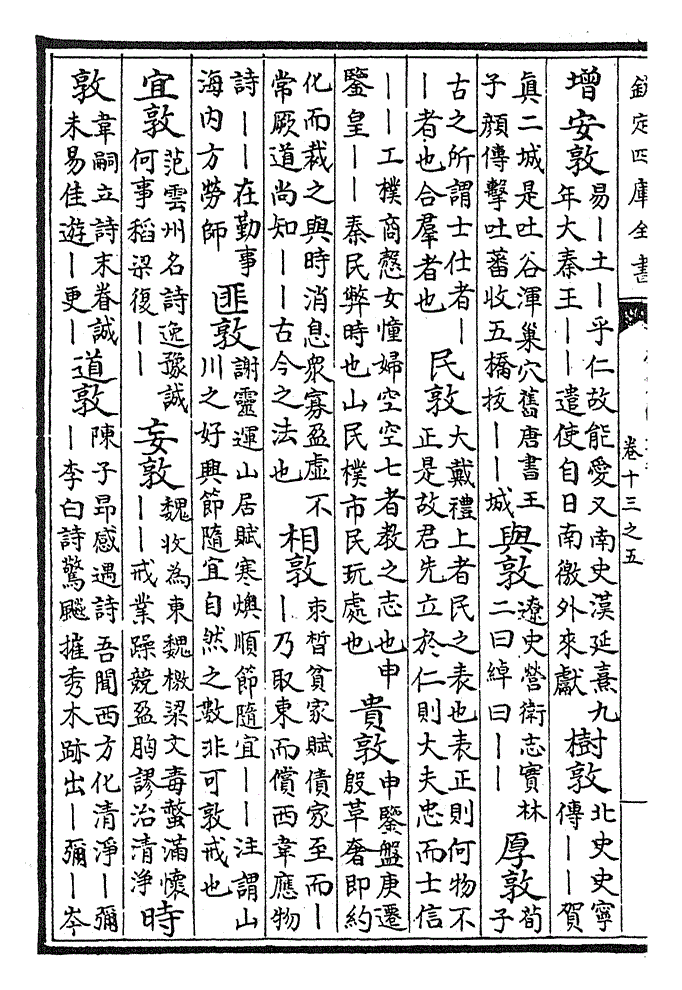 欽定四庫全書
卷十三之五
增安敦
易｜土｜乎仁故能愛又南史漢延熹九
年大秦王｜｜遣使自日南徼外來獻
樹敦
北史史寧
傳｜｜賀
真二城是吐谷渾巢穴舊唐書王
子顔傳擊吐蕃收五橋拔｜｜城
與敦
遼史營衛志實林
二曰綽曰｜｜
厚敦
荀
子
古之所謂士仕者｜
｜者也合羣者也
民敦
大戴禮上者民之表也表正則何物不
正是故君先立於仁則大夫忠而士信
｜｜工樸商慤女憧婦空空七者教之志也申
鑒皇｜｜秦民弊時也山民樸市民玩處也
貴敦
申鑒盤庚遷
殷革奢即約
化而裁之與時消息衆寡盈虛不
常厥道尚知｜｜古今之法也
相敦
束晳貧家賦債家至而｜
｜乃取東而償西韋應物
詩｜｜在勤事
海内方勞師
匪敦
謝靈運山居賦寒燠順節隨宜｜｜注謂山
川之好興節隨宜自然之數非可敦戒也
宜敦
范雲州名詩逸豫誠
何事稻粱復｜｜
妄敦
魏收為東魏檄梁文毒螫滿懷
｜｜戒業躁競盈胸謬治清淨
時
敦
韋嗣立詩末眷誠
未易佳遊｜更｜
道敦
陳子昂感遇詩吾聞西方化清淨｜彌
｜李白詩驚飈摧秀木跡出｜彌｜岑